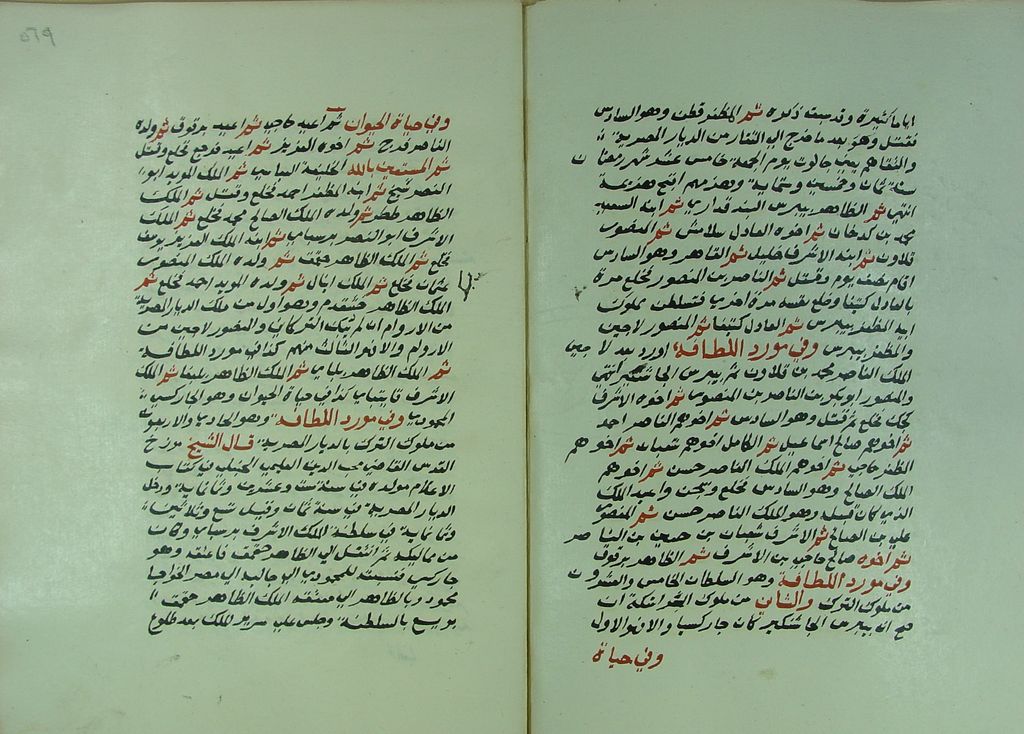 اياما كثيرة وقد سبق ذكره ثم المظفر قطز وهو السادس
فقتل وهو بعد ما خرج الي التتار من الديار المصرية
والتقاهم بعين جالوت يوم الجمعة خامس عشر شهر رمضان
سنة ثمان وخمسين وستماية وهزمهم اقبح هزيمة
انتهي ثم الظاهر بيبرس البندقداري ثم ابنه السعيد
محمد بن كدخان ثم اخوه العادل سلامش ثم المنصور
قلاون ثم ابنه الاشرف خليل ثم القاهر وهو السادس
اقام نصف يوم وقتل ثم الناصر بن المنصور فخلع مرة
بالعادل كتبغا وخلع نفسه مرة اخري فتسلطن مملوك
ابيه المظفر بيبرس ثم العادل كتبغا ثم المنصور لاجين
والمظفر بيبرس وفي مورد اللطافة اورد بعد لاجين
الملك الناصر محمد بن قلاون ثم بيبرس الجاشنكير انتهي
والمنصور ابو بكر بن الناصر بن المنصور ثم اخوه الاشرف
كجك فخلع ثم قتل وهو السادس ثم اخوهم الناصر احمد
ثم اخوهم صالح اسماعيل ثم الكامل اخوهم شعبان ثم اخوهم
المظفر حاجي ثم اخوهم الملك الناصر حسن ثم اخوهم
الملك الصالح وهو السادس فخلع وسجن واعيد الملك
الذي كان قبله وهو الملك الناصر حسن ثم المنصور
علي بن الصالح ثم الاشرف شعبان بن حسين بن الناصر
ثم اخوه صالح حاجي بن الاشرف ثم الظاهر برقوق
وفي مورد اللطافة وهو السلطان الخامس والعشرون
من ملوك الترك والثاني من ملوك الجراكسة ان
صح ان بيبرس الجاشنكير كان جاركسيا والا فهو الاول
وفي حياة
٥٦٩
وفي حياة الحيوان ثم اعيد حاجي ثم اعيد برقوق ثم ولده
الناصر فرج ثم اخوه العزيز ثم اعيد فرج فخلع وقتل
ثم المستعين بالله الخليفة العباسي ثم الملك المويد ابو
النصر شيخ ثم ابنه المظفر احمد فخلع وقتل ثم الملك
الظاهر ططر ثم ولده الملك الصالح محمد فخلع ثم الملك
الاشرف ابو النصر برسباي ثم ابنه الملك العزيز يوسف
فخلع ثم الملك الظاهر جقمق ثم ولده الملك المنصور
عثمان فخلع ثم الملك اينال ثم ولده المويد احمد فخلع ثم
الملك الظاهر خشقدم وهو اول من ملك الديار المصرية
من الاروام ان لم يكن ايبك التركماني والمنصور لاجين من
الاروام والا فهو الثالث منهم كذا في مورد اللطافة
ثم الملك الظاهر يلباي ثم الملك الظاهر تمربغا ثم الملك
الاشرف قايتباي كذا في حياة الحيوان وهو الجاركسي
المحمودي وفي مورد اللطافة وهو الحادي والاربعون
من ملوك الترك بالديار المصرية قال الشيخ مورخ
القدس القاضي مجير الدين العليمي الحنبلي في كتاب
الاعلام مولده في سنة ست وعشرين وثمانماية ودخل
الديار المصرية في سنة ثمان وقيل تسع وثلاثين
وثمانماية في سلطنة الملك الاشرف برسباي وكان
من مماليكه ثم انتقل الي الظاهر جقمق فاعتقه وهو
جاركسي فنسبته للمحمودي الي جالبه الي مصر الخواجا
محمود وبالظاهر الي معتقه الملك الظاهر جقمق
بويع بالسلطنة وجلس علي سرير الملك بعد طلوع